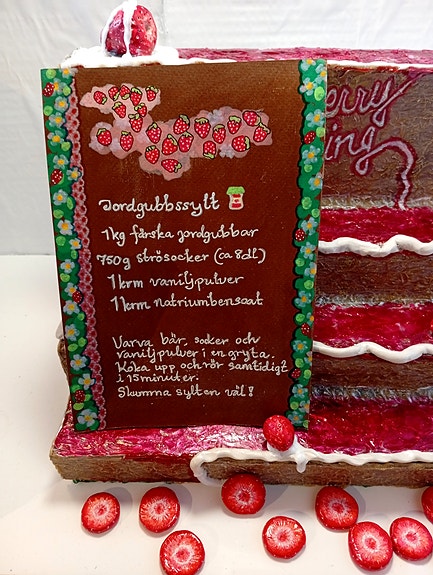 Jordgubbssylt
1kg färska jordgubbar
750g strösocker (ca 8dl)
1krm vaniljpulver
1krm natriumbensoat
Varva bär, socker och
vaniljpulver i en gryta.
Koka upp och rör samtidigt
i 15 minuter.
Skumma sylten väl!
erry
ing